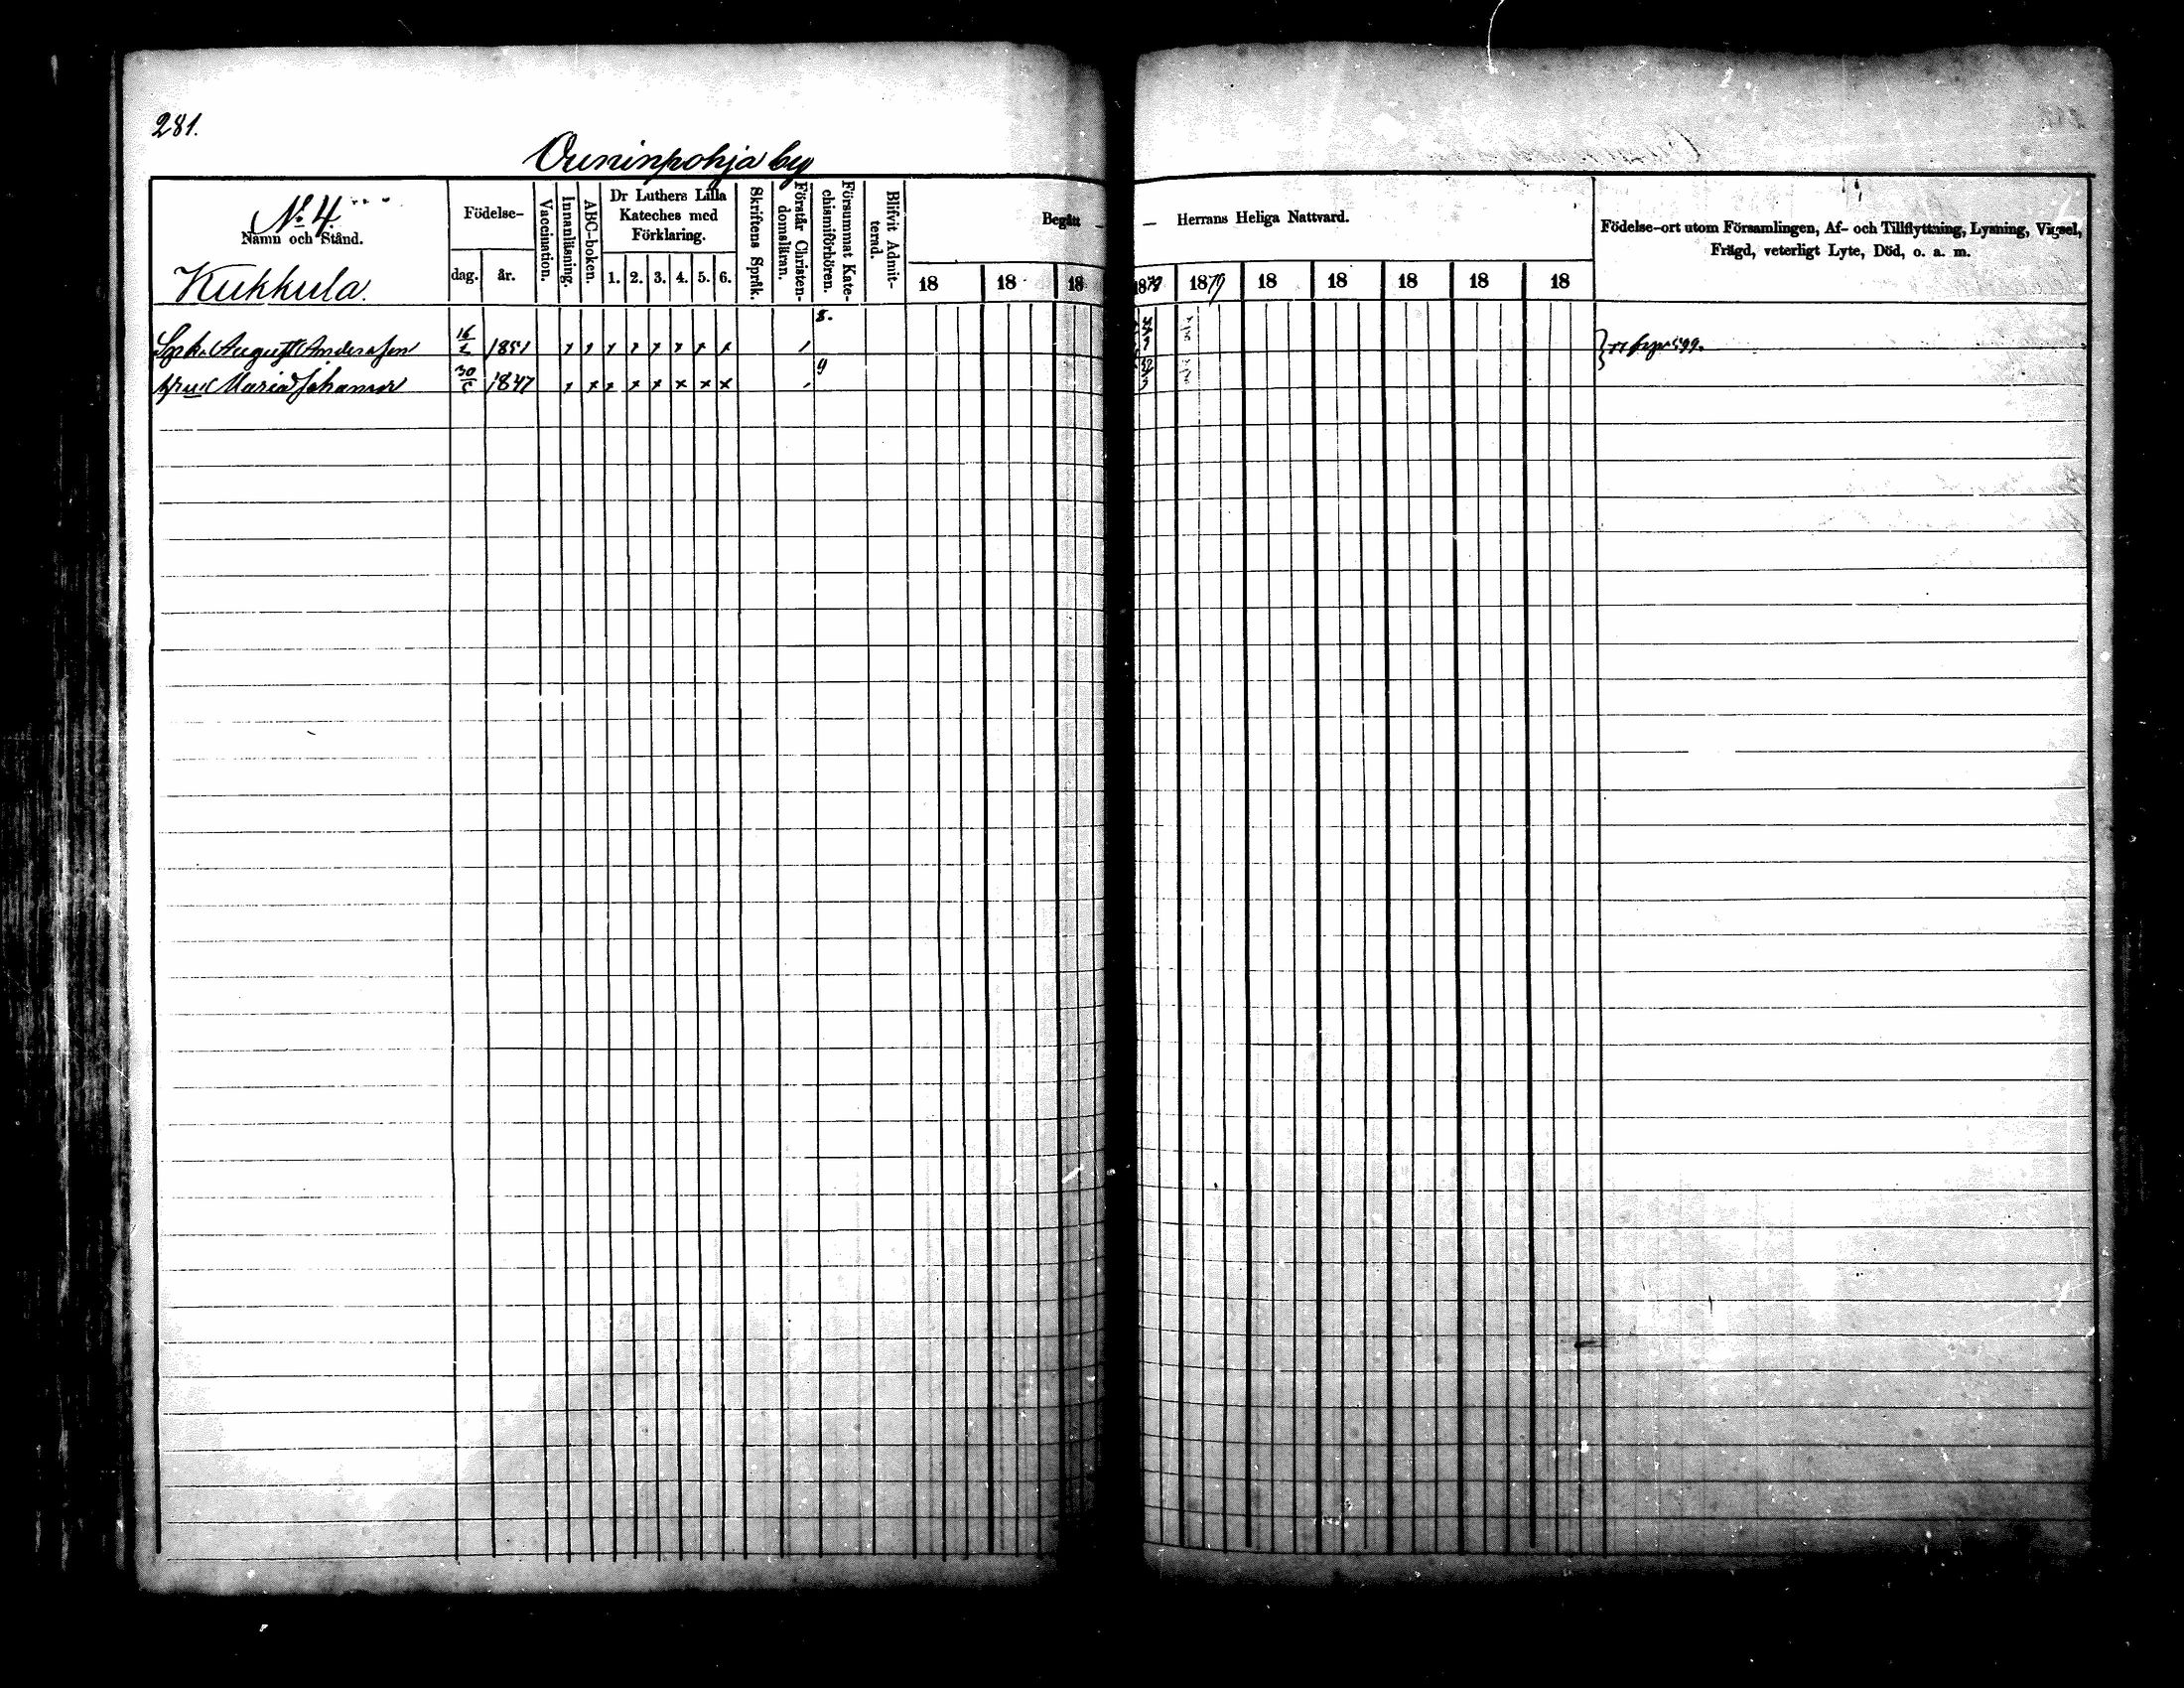 281.
Ouninpohja by
No 4
Namn och Stånd.
Kukkula.
Födelse-
dag. år.
Vaccination.
Innanläsning.
ABC-boken.
Dr Luthers Lilla
Kateches med
Förklaring.
1. 2. 3. 4. 5. 6.
Skriftens Språk.
Förstår Christen-
domsläran.
Försummat Kate-
chismiförhören.
Blifvit Admit-
terad.
Begått — Herrans Heliga Nattvard.
18 18 18 1878 1879 18 18 18 18 18
Födelse-ort utom Församlingen, Af- och Tillflyttning, Lysning, Vigsel,
Frägd, veterligt Lyte, Död, o. a. m.
8.
August Andersson 16 1851 x x x x x x x x
9
Maria Johansdr 30 1847 x x x x x x x x